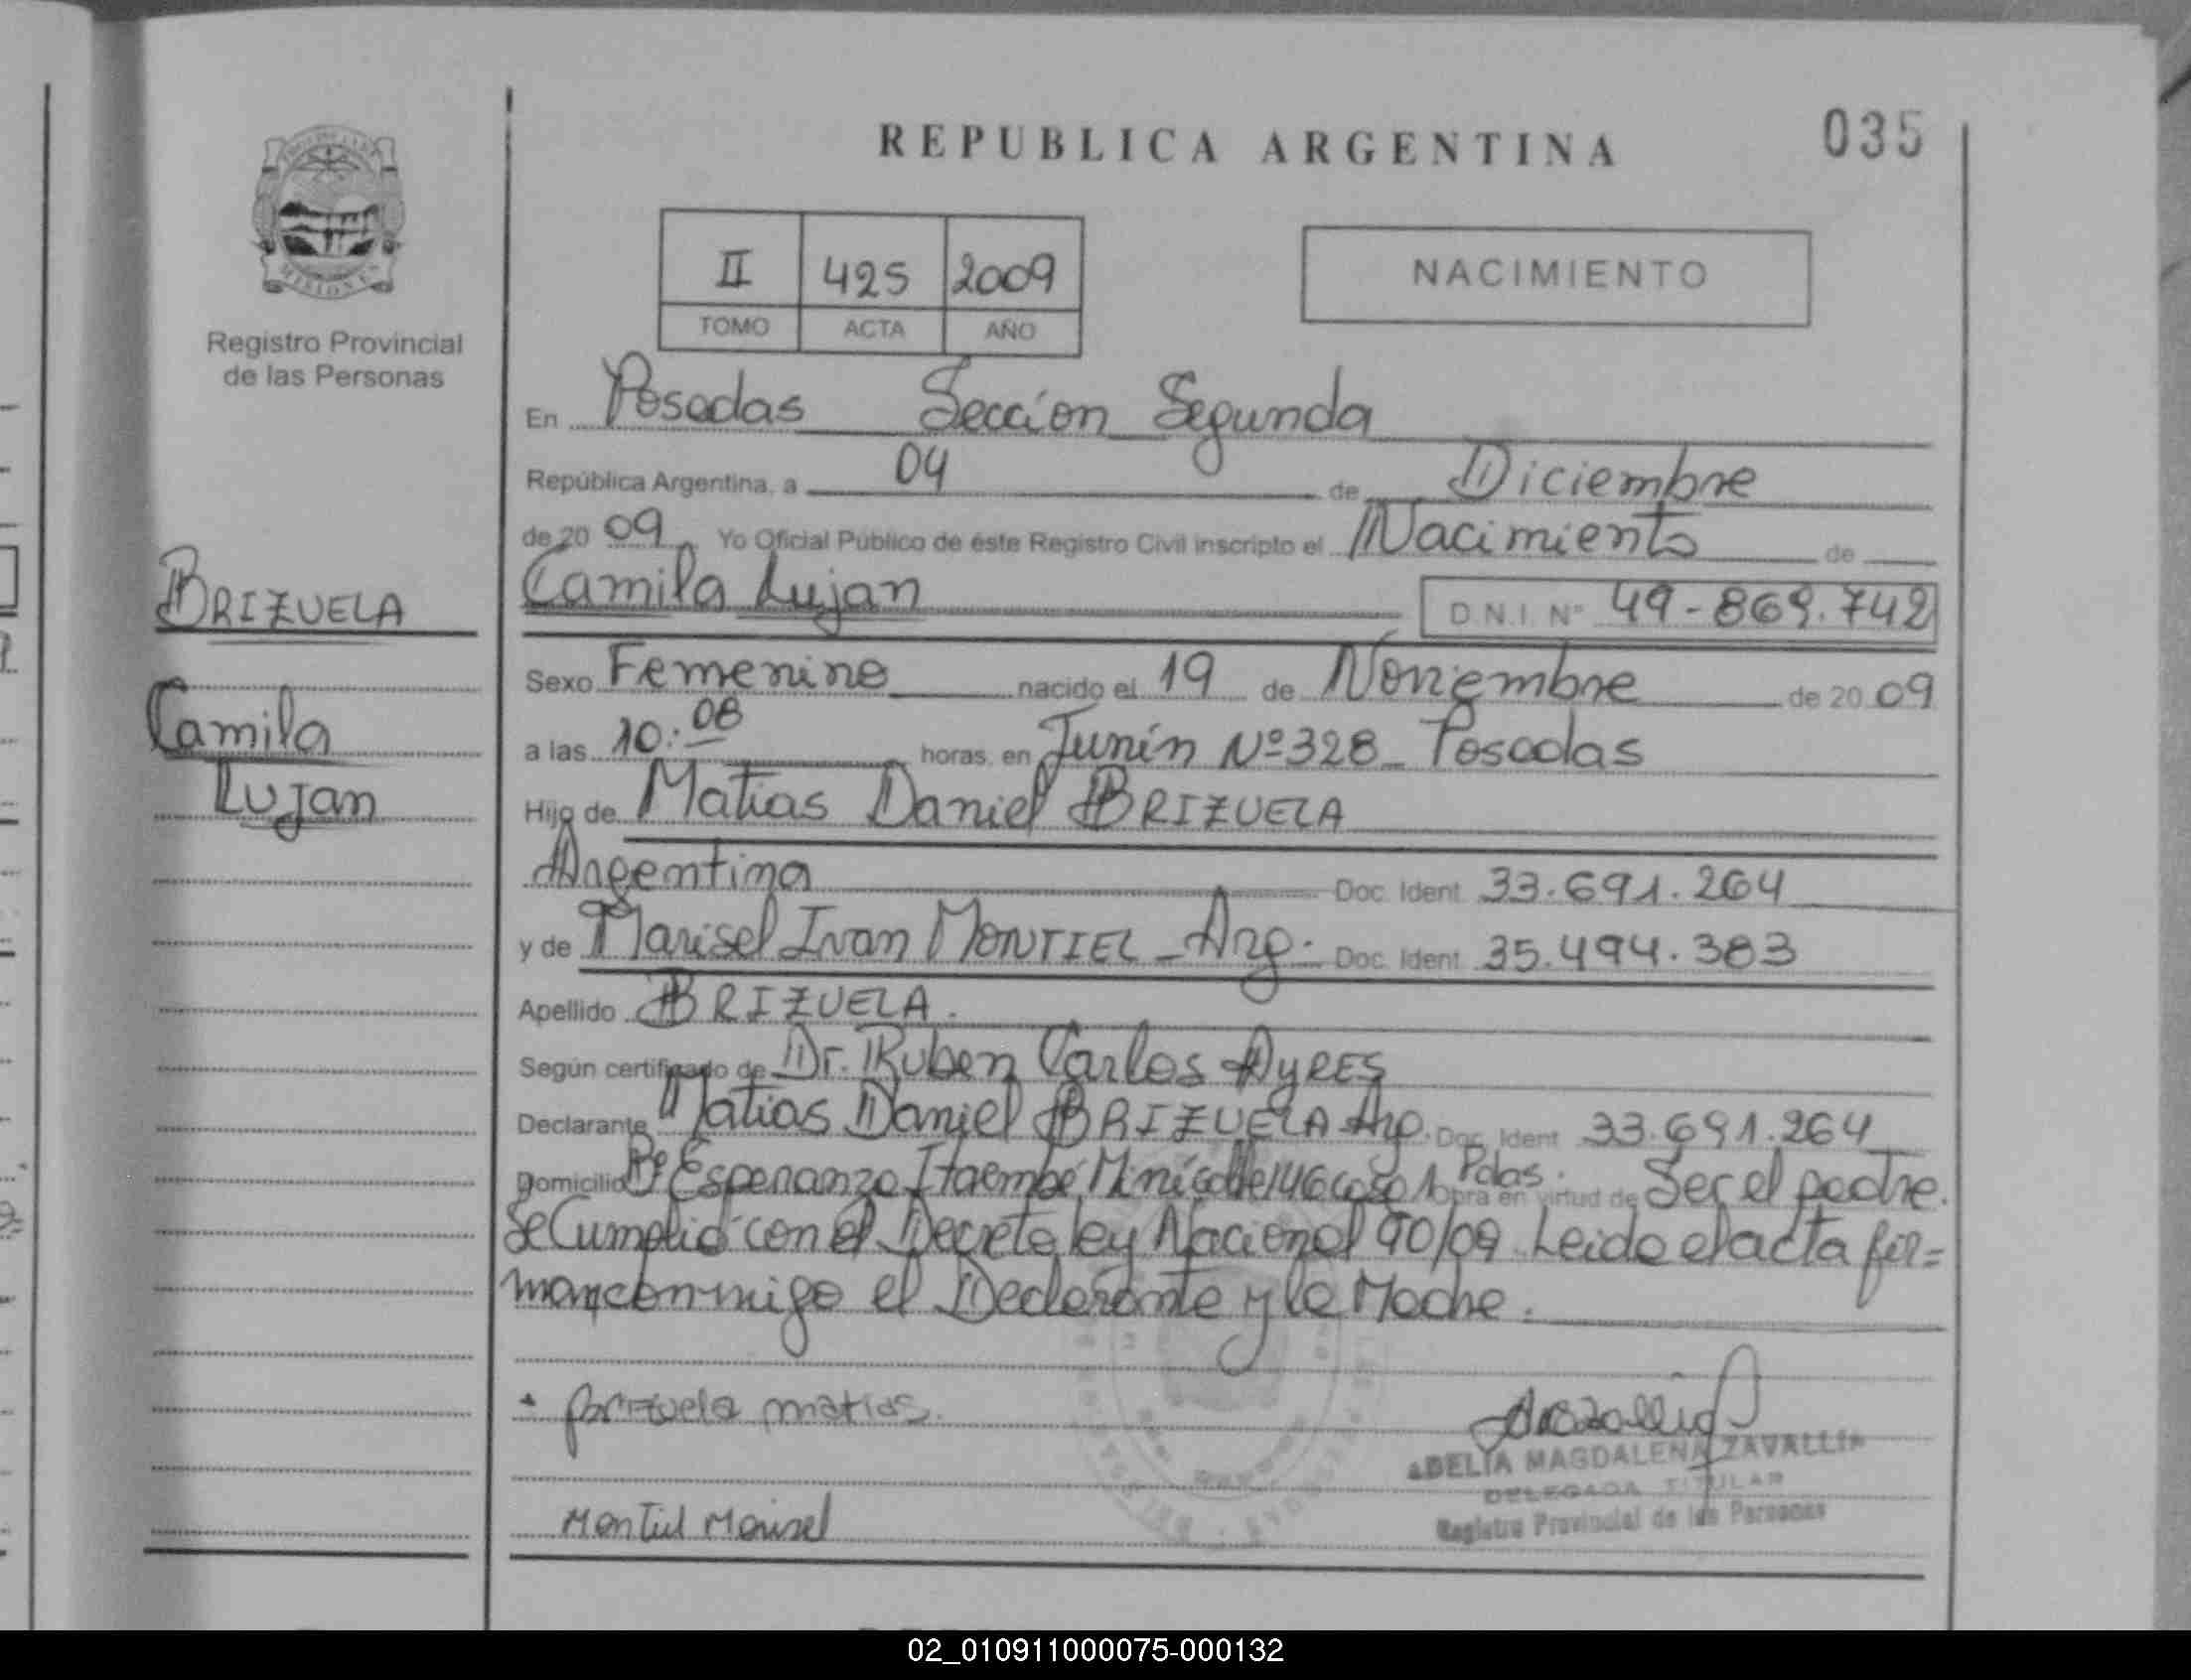 REPUBLICA ARGENTINA
035
MISIONES
Registro Provincial
de las Personas
II 425 2009
TOMO ACTA AÑO
NACIMIENTO
BRIZUELA
Camila
Lujan
En Posadas Sección Segunda
República Argentina, a 04 de Diciembre
de 20 09 Yo Oficial Público de éste Registro Civil inscripto el Nacimiento de
Camila Lujan D.N.I. N° 49-869.742
Sexo Femenino nacido el 19 de Noviembre de 20 09
a las 10:08 horas, en Junín Nº 328 Posadas
Hijo de Matias Daniel BRIZUELA
Argentina Doc. Ident. 33.691.264
y de Marisel Ivan MONTIEL - Arg. Doc. Ident. 35.494.383
Apellido BRIZUELA.
Según certificado de Dr. Ruben Carlos AyRES
Declarante Matias Daniel BRIZUELA Arg. Doc. Ident. 33.691.264
Domicilio Bº Esperanza Itaembé Miní calle 146 casa 1 Pdas. Obra en virtud de Ser el padre.
Se Cumplió con el Decreto ley Nacional 90/09. Leida el acta fir=
man conmigo el Declarante y la Madre.
Brizuela matias.
ADELIA MAGDALENA ZAVALLIA
DELEGADA TITULAR
Registro Provincial de las Personas
Montiel Marisel
02_010911000075-000132